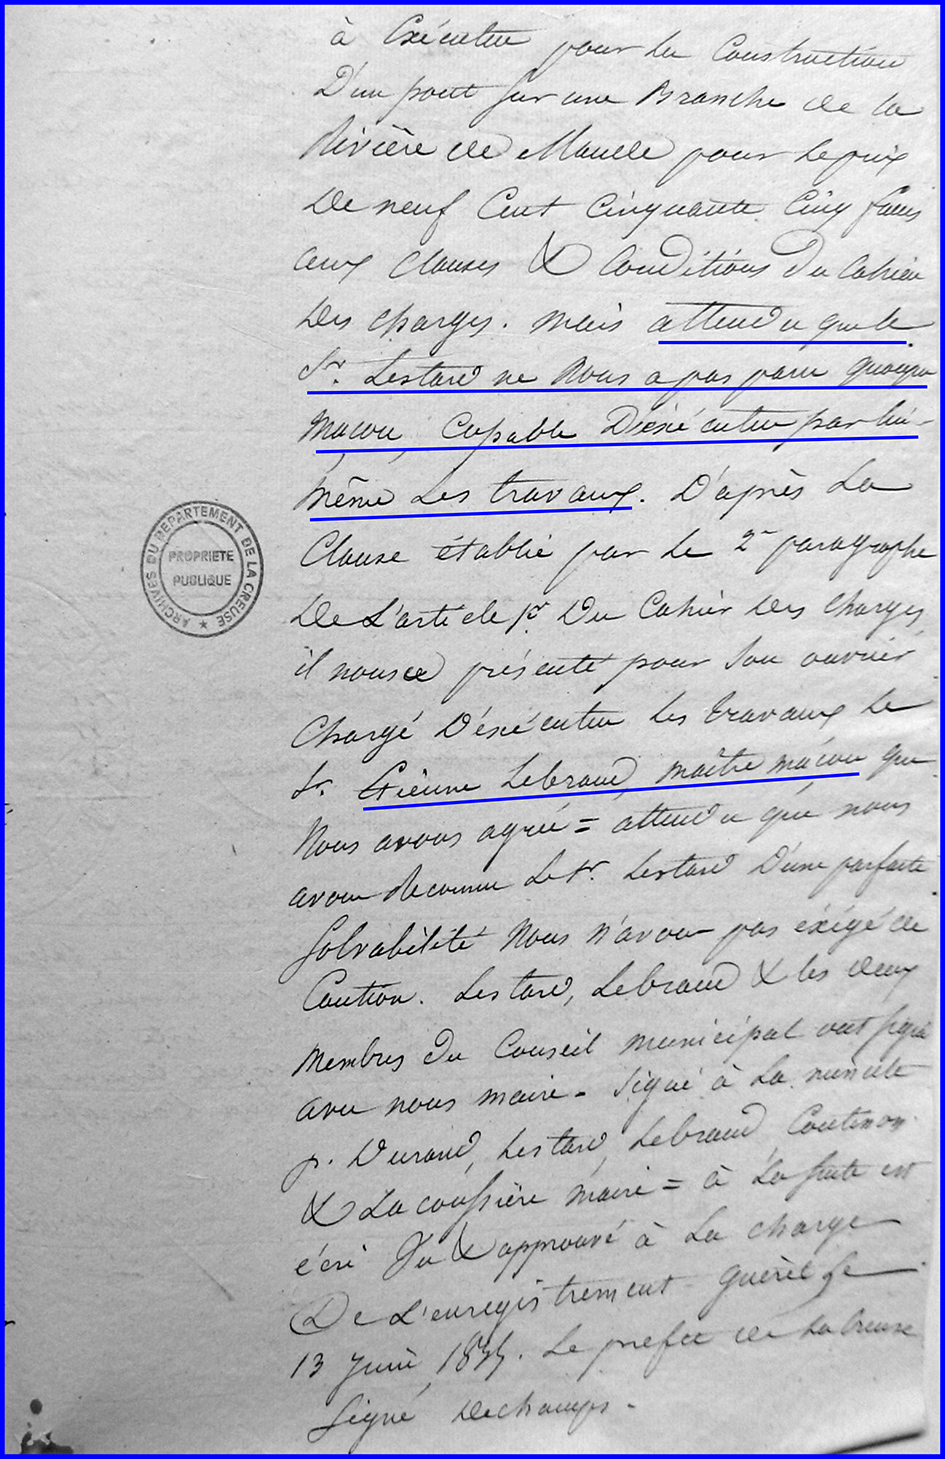 à Exécuter pour la Construction
D'un pont sur une Branche de la
Rivière de Maude pour le prix
De neuf Cent Cinquante Cinq francs
aux clauses & Conditions du Cahier
Des charges. mais attendu que le
Sr. Lestard ne Nous a pas paru quoique
Maçon, Capable D'éxécuter par lui-
même Les travaux. D'après La
Clause établie par le 2e paragraphe
De L'article 1er Du Cahier des charges
il nous a présenté pour son ouvrier
Chargé D'éxécuter les travaux le
Sr. Etienne Lebraud, maître maçon que
Nous avons agréé = attendu que nous
avons Reconnu Le Sr. Lestard D'une parfaite
Solvabilité Nous n'avons pas éxigé de
Caution. Lestard, Lebraud & les deux
Membres du Conseil municipal ont signé
avec nous maire - Signé à La minute
p. Durand, Lestard, Lebraud, Coutinon
& La coussière maire = à La suite est
écri Vu & approuvé à La charge
De L'enregistrement Guéret le
13 Juin . Le préfet de la Creuse
Signé Dechamps.
ARCHIVES DU DEPARTEMENT DE LA CREUSE
PROPRIETE
PUBLIQUE